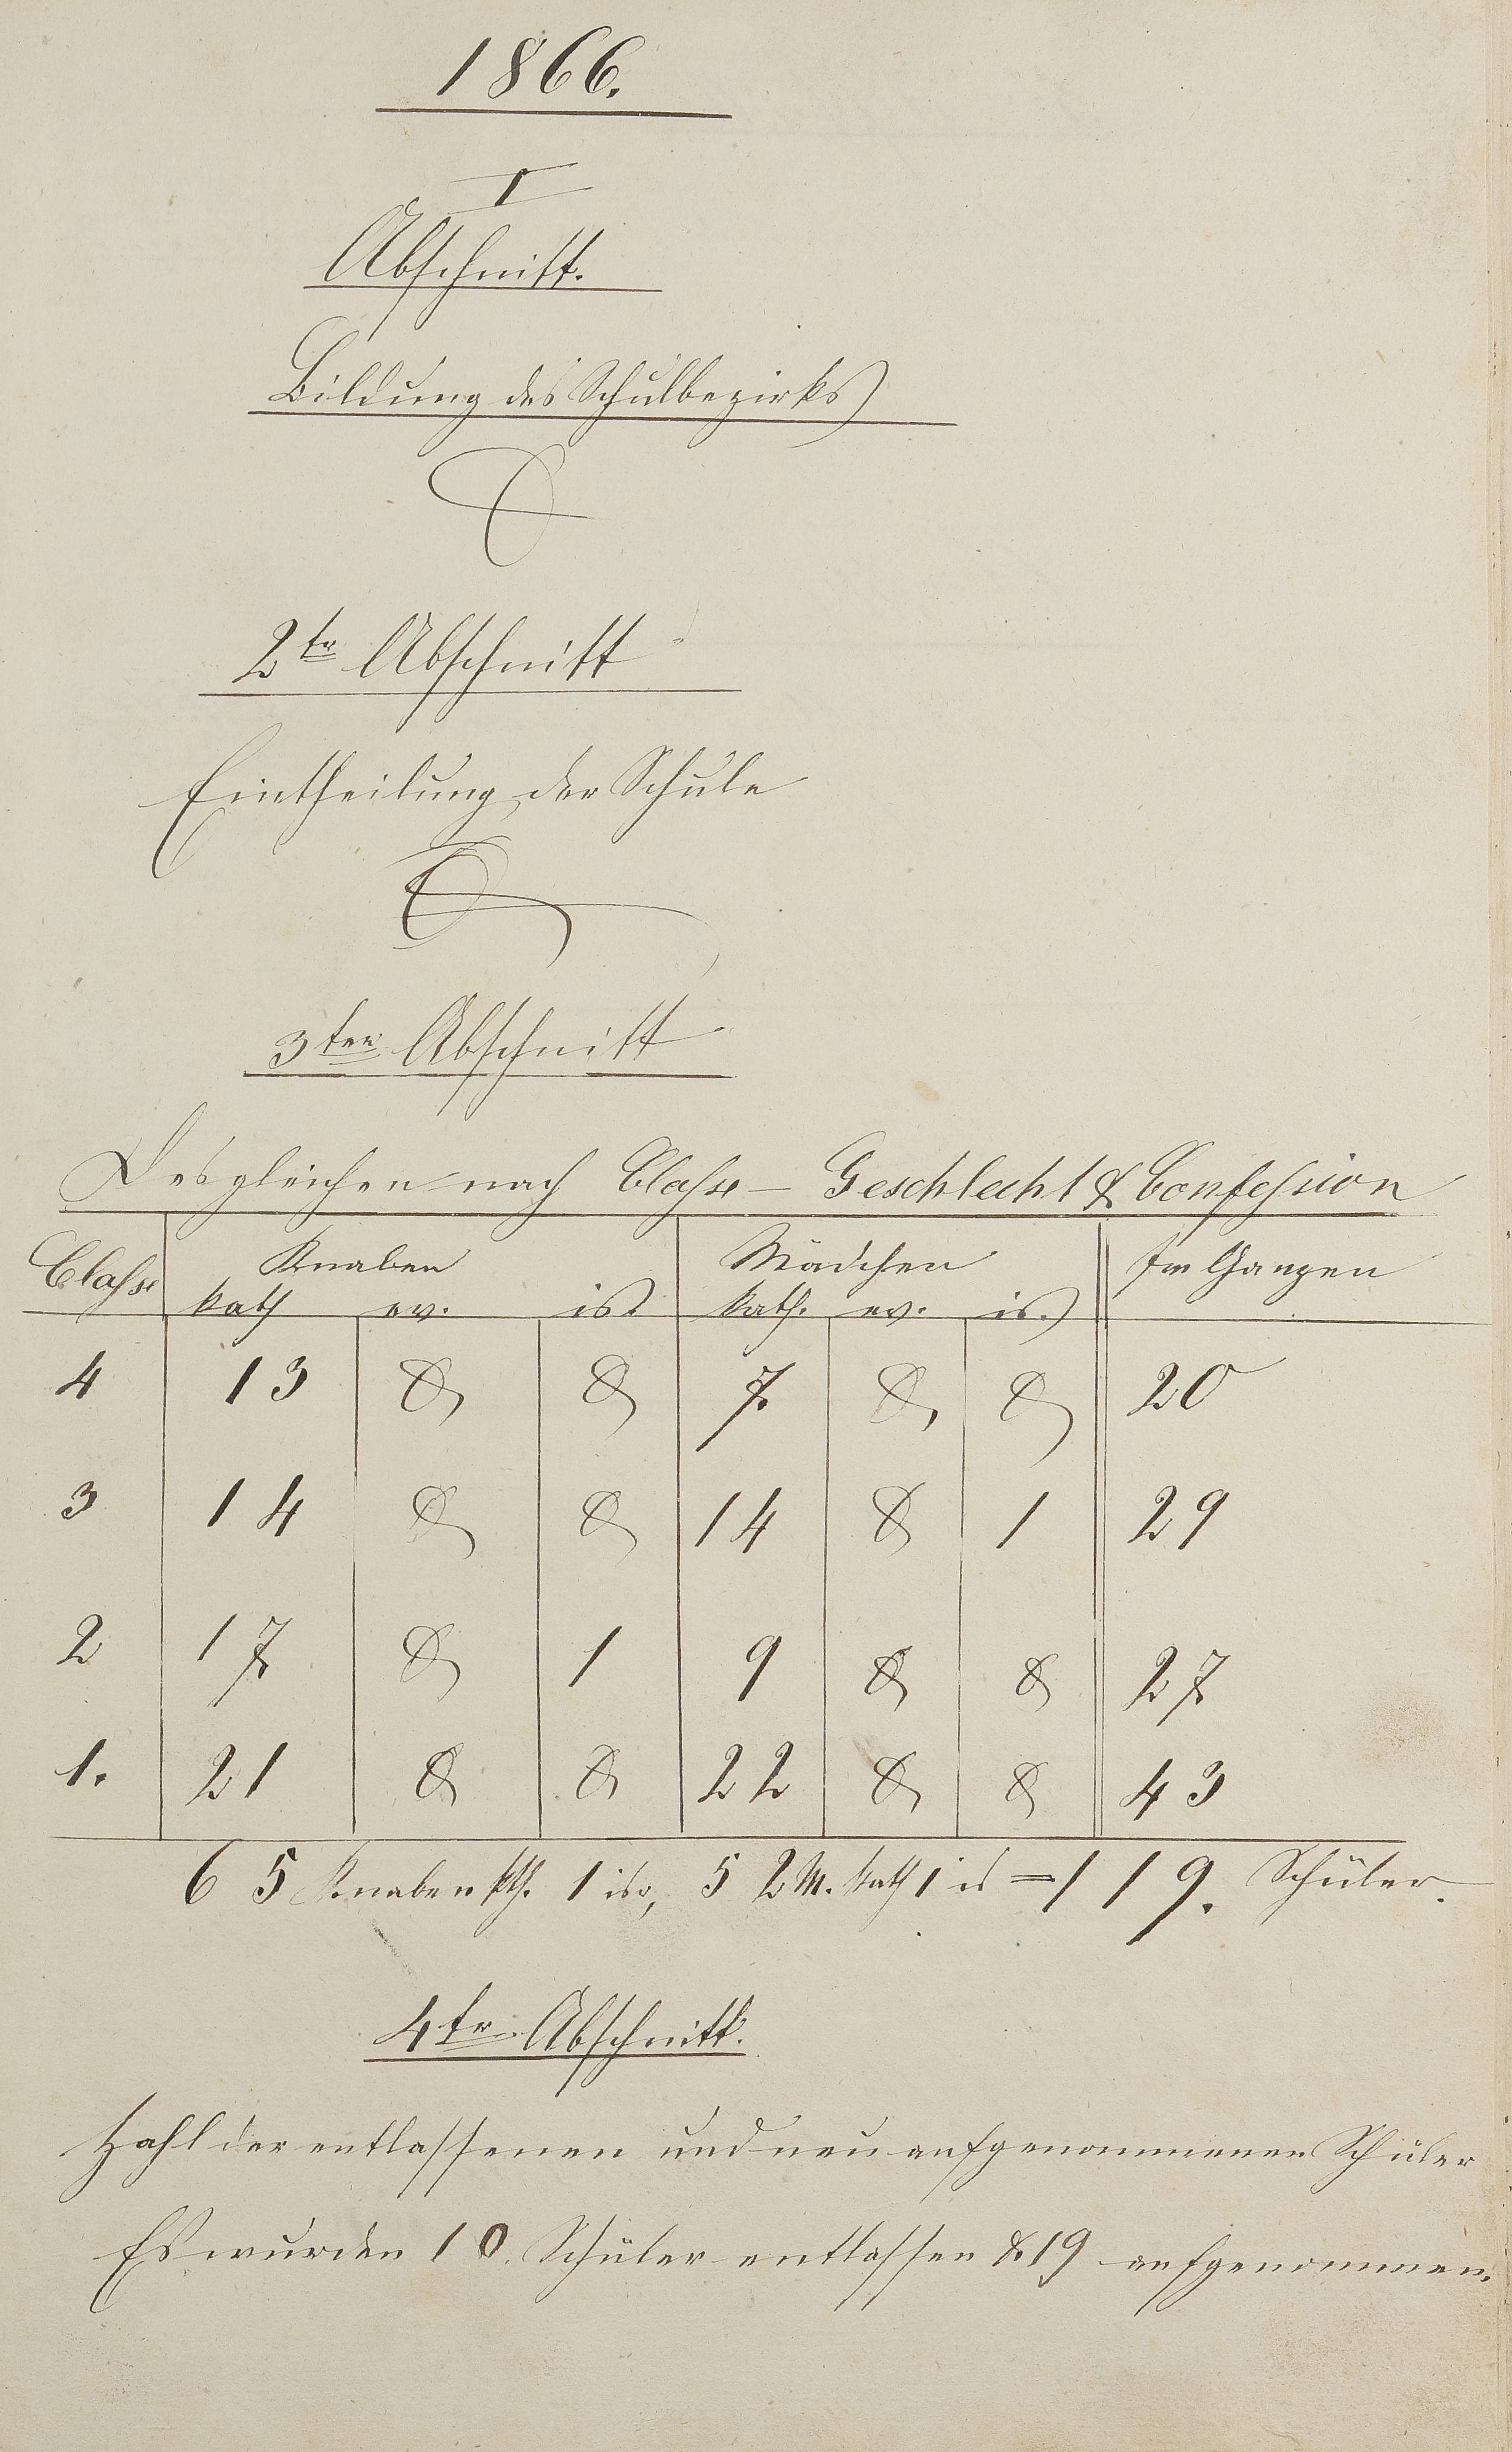 1866.
I
Abschnitt.
Bildung des Schulbezirks
2tr Abschnitt
Eintheilung der Schule
3ter Abschnitt
Desgleichen nach Classe – Geschlecht & Confession
Classe Knaben Mädchen Im Ganzen
kath ev. isr kath. ev. is.
4 13 7 20
3 14 14 1 29
2 17 1 9 27
1. 21 22 43
65 Knaben kth. 1 isr, 52 M. kath 1 is = 119. Schüler.
4tr Abschnitt.
Zahl der entlassenen und neu aufgenommenen Schüler
Es wurden 10. Schüler entlassen & 19 aufgenommen.